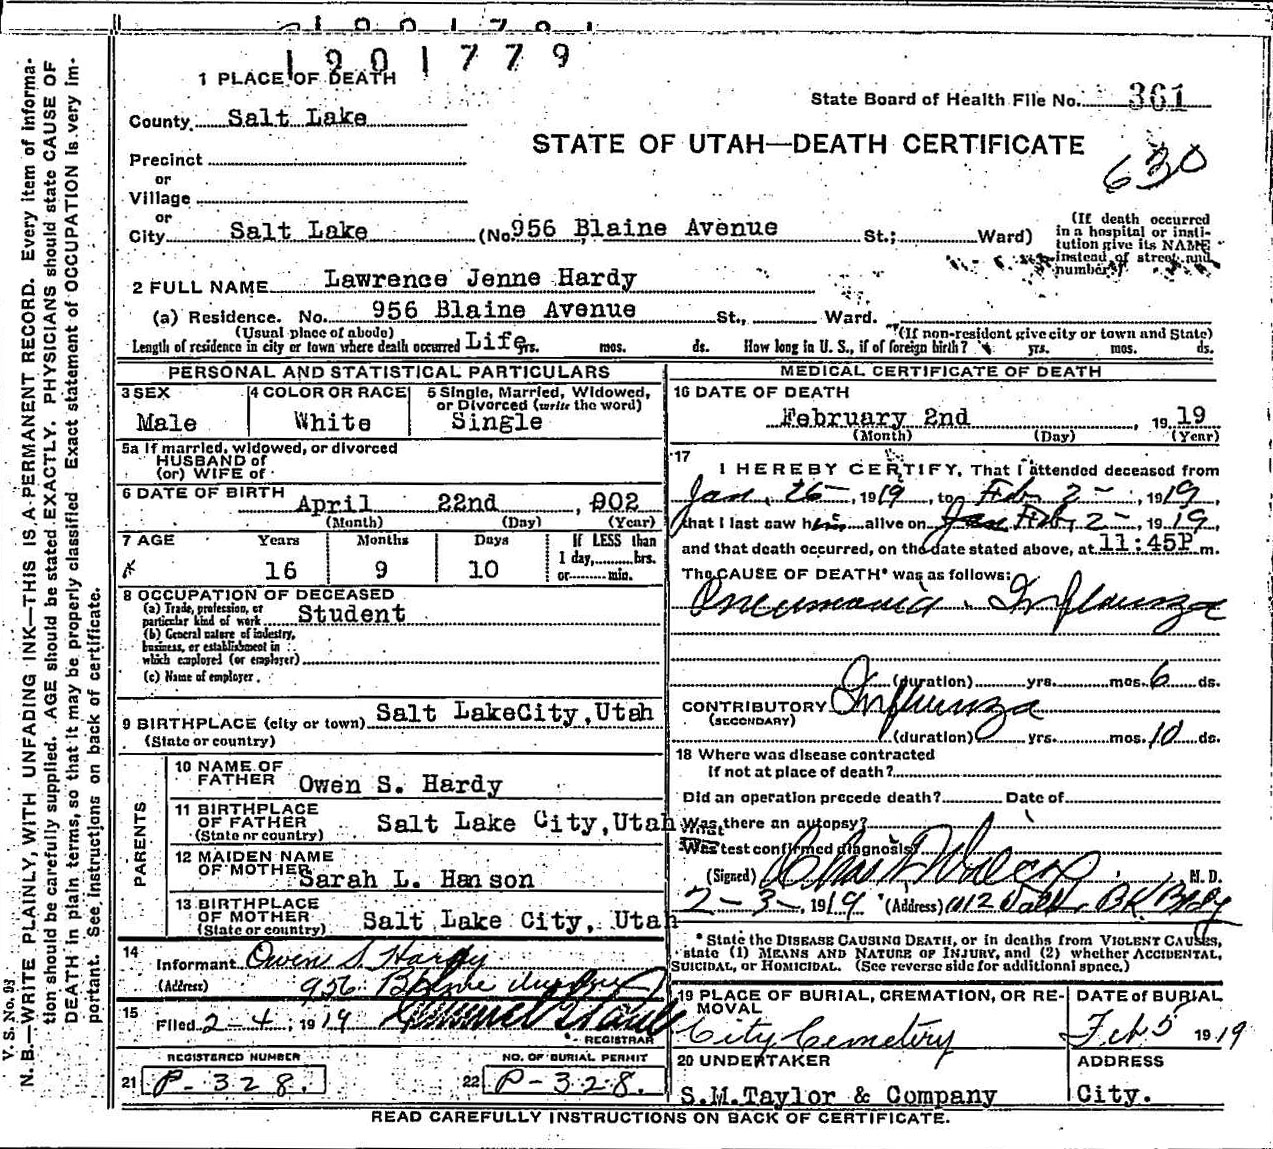 1901779
1 PLACE OF DEATH
State Board of Health File No. 361
County Salt Lake
STATE OF UTAH—DEATH CERTIFICATE
630
Precinct
or
Village
or
City Salt Lake (No. 956 Blaine Avenue St.; Ward)
(If death occurred in a hospital or institution give its NAME instead of street and number)
2 FULL NAME Lawrence Jenne Hardy
(a) Residence. No. 956 Blaine Avenue St., Ward.
(Usual place of abode) (If non-resident give city or town and State)
Length of residence in city or town where death occurred Life yrs. mos. ds. How long in U. S., if of foreign birth? yrs. mos. ds.
PERSONAL AND STATISTICAL PARTICULARS
3 SEX
Male
4 COLOR OR RACE
White
5 Single, Married, Widowed,
or Divorced (write the word)
Single
5a If married, widowed, or divorced
HUSBAND of
(or) WIFE of
6 DATE OF BIRTH April 22nd, 902
(Month) (Day) (Year)
7 AGE Years Months Days If LESS than
1 day, hrs.
16 9 10 or min.
8 OCCUPATION OF DECEASED
(a) Trade, profession, or
particular kind of work Student
(b) General nature of industry,
business, or establishment in
which employed (or employer)
(c) Name of employer
9 BIRTHPLACE (city or town) Salt LakeCity, Utah
(State or country)
PARENTS
10 NAME OF
FATHER Owen S. Hardy
11 BIRTHPLACE
OF FATHER Salt Lake City, Utah
(State or country)
12 MAIDEN NAME
OF MOTHER Sarah L. Hanson
13 BIRTHPLACE
OF MOTHER Salt Lake City, Utah
(State or country)
14
Informant Owen S. Hardy
(Address) 956 Blaine
15
Filed 2-4, 1919
REGISTRAR
REGISTERED NUMBER NO. OF BURIAL PERMIT
21 P-328. 22 P-328.
MEDICAL CERTIFICATE OF DEATH
16 DATE OF DEATH
February 2nd, 1919
(Month) (Day) (Year)
17
I HEREBY CERTIFY, That I attended deceased from
Jan. 26-, 1919, to Feb 2-, 1919,
that I last saw him alive on Jan Feb. 2-, 1919,
and that death occurred, on the date stated above, at 11:45P m.
The CAUSE OF DEATH* was as follows:
Pneumonia. Influenza
(duration) yrs. mos. 6 ds.
CONTRIBUTORY Influenza
(SECONDARY)
(duration) yrs. mos. 10 ds.
18 Where was disease contracted
If not at place of death?
Did an operation precede death? Date of
Was there an autopsy?
What test confirmed diagnosis?
(Signed) M. D.
2-3-, 1919 (Address)
* State the DISEASE CAUSING DEATH, or in deaths from VIOLENT CAUSES,
state (1) MEANS AND NATURE OF INJURY, and (2) whether ACCIDENTAL,
SUICIDAL, or HOMICIDAL. (See reverse side for additional space.)
19 PLACE OF BURIAL, CREMATION, OR RE-
MOVAL
City Cemetery
DATE of BURIAL
Feb 5 1919
20 UNDERTAKER
S.M.Taylor & Company
ADDRESS
City.
READ CAREFULLY INSTRUCTIONS ON BACK OF CERTIFICATE.
V. S. No. 93
N. B.—WRITE PLAINLY, WITH UNFADING INK—THIS IS A PERMANENT RECORD. Every item of informa-
tion should be carefully supplied. AGE should be stated EXACTLY. PHYSICIANS should state CAUSE OF
DEATH in plain terms, so that it may be properly classified. Exact statement of OCCUPATION is very im-
portant. See instructions on back of certificate.